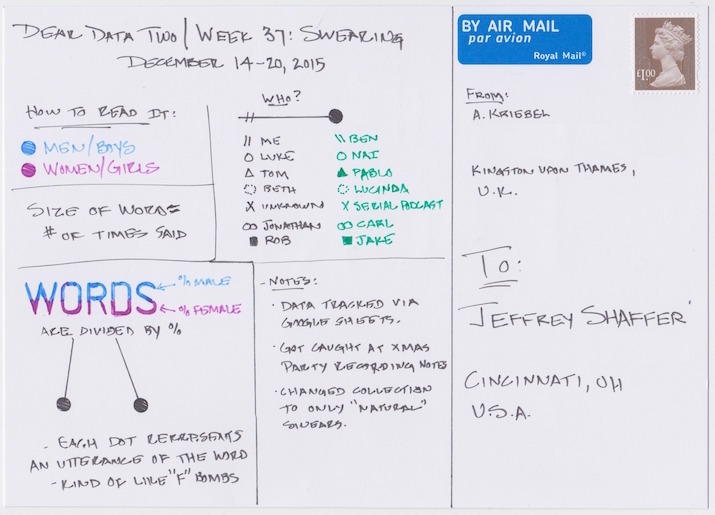 DEAR DATA TWO / WEEK 37: SWEARING
DECEMBER 14-20, 2015
HOW TO READ IT:
MEN/BOYS
WOMEN/GIRLS
SIZE OF WORD =
# OF TIMES SAID
WHO?
ME
LUKE
TOM
BETH
UNKNOWN
JONATHAN
ROB
BEN
NAI
PABLO
LUCINDA
SERIAL PODCAST
CARL
JAKE
WORDS
% MALE
% FEMALE
ARE DIVIDED BY %
- EACH DOT RERRESENTS
AN UTTERANCE OF THE WORD
- KIND OF LIKE "F" BOMBS
- NOTES:
· DATA TRACKED VIA
GOOGLE SHEETS.
· GOT CAUGHT AT XMAS
PARTY RECORDING NOTES
· CHANGED COLLECTION
TO ONLY "NATURAL"
SWEARS.
BY AIR MAIL
par avion
Royal Mail®
£1.00
FROM:
A. KRIEBEL
KINGSTON UPON THAMES,
U.K.
TO:
JEFFREY SHAFFER
CINCINNATI, OH
U.S.A.